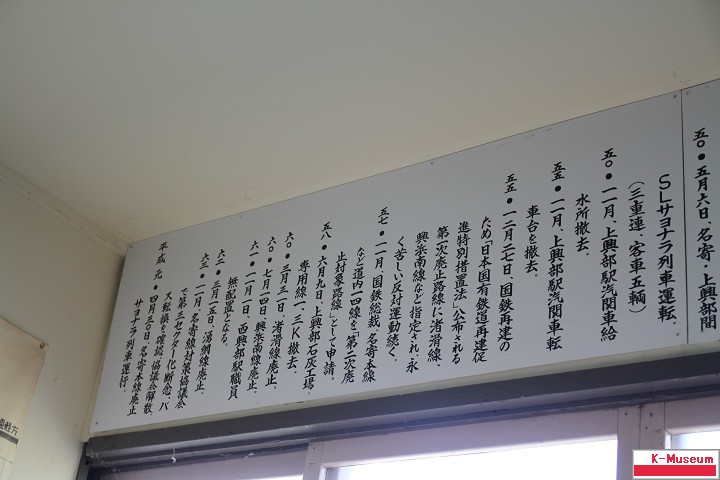 五〇・五月六日、名寄・上興部間
SLサヨナラ列車運転。
(三重連、客車五輌)
五〇・一一月、上興部駅汽関車給
水所撤去。
五五・一一月、上興部駅汽関車転
車台を撤去。
五五・一二月二七日、国鉄再建の
ため「日本国有鉄道再建促
進特別措置法」公布される
第一次廃止路線に渚滑線、
興浜南線など指定され、永
く苦しい反対運動続く。
五七・一一月、国鉄総裁、名寄本線
など道内一四線を「第二次廃
止対象路線」として申請。
五八・六月九日、上興部石灰工場、
専用線一、三K撤去。
六〇・三月三一日、渚滑線廃止。
六〇・七月一四日、興浜南線廃止。
六一・一一月一日、西興部駅職員
無配置となる。
六二・三月一五日、湧網線廃止。
六三・一一月、名寄線対策協議会
で第三セクター化断念、バ
ス転換を確認、協議会解散
平成元・四月三〇日、名寄本線廃止
サヨナラ列車運行。
K-Museum